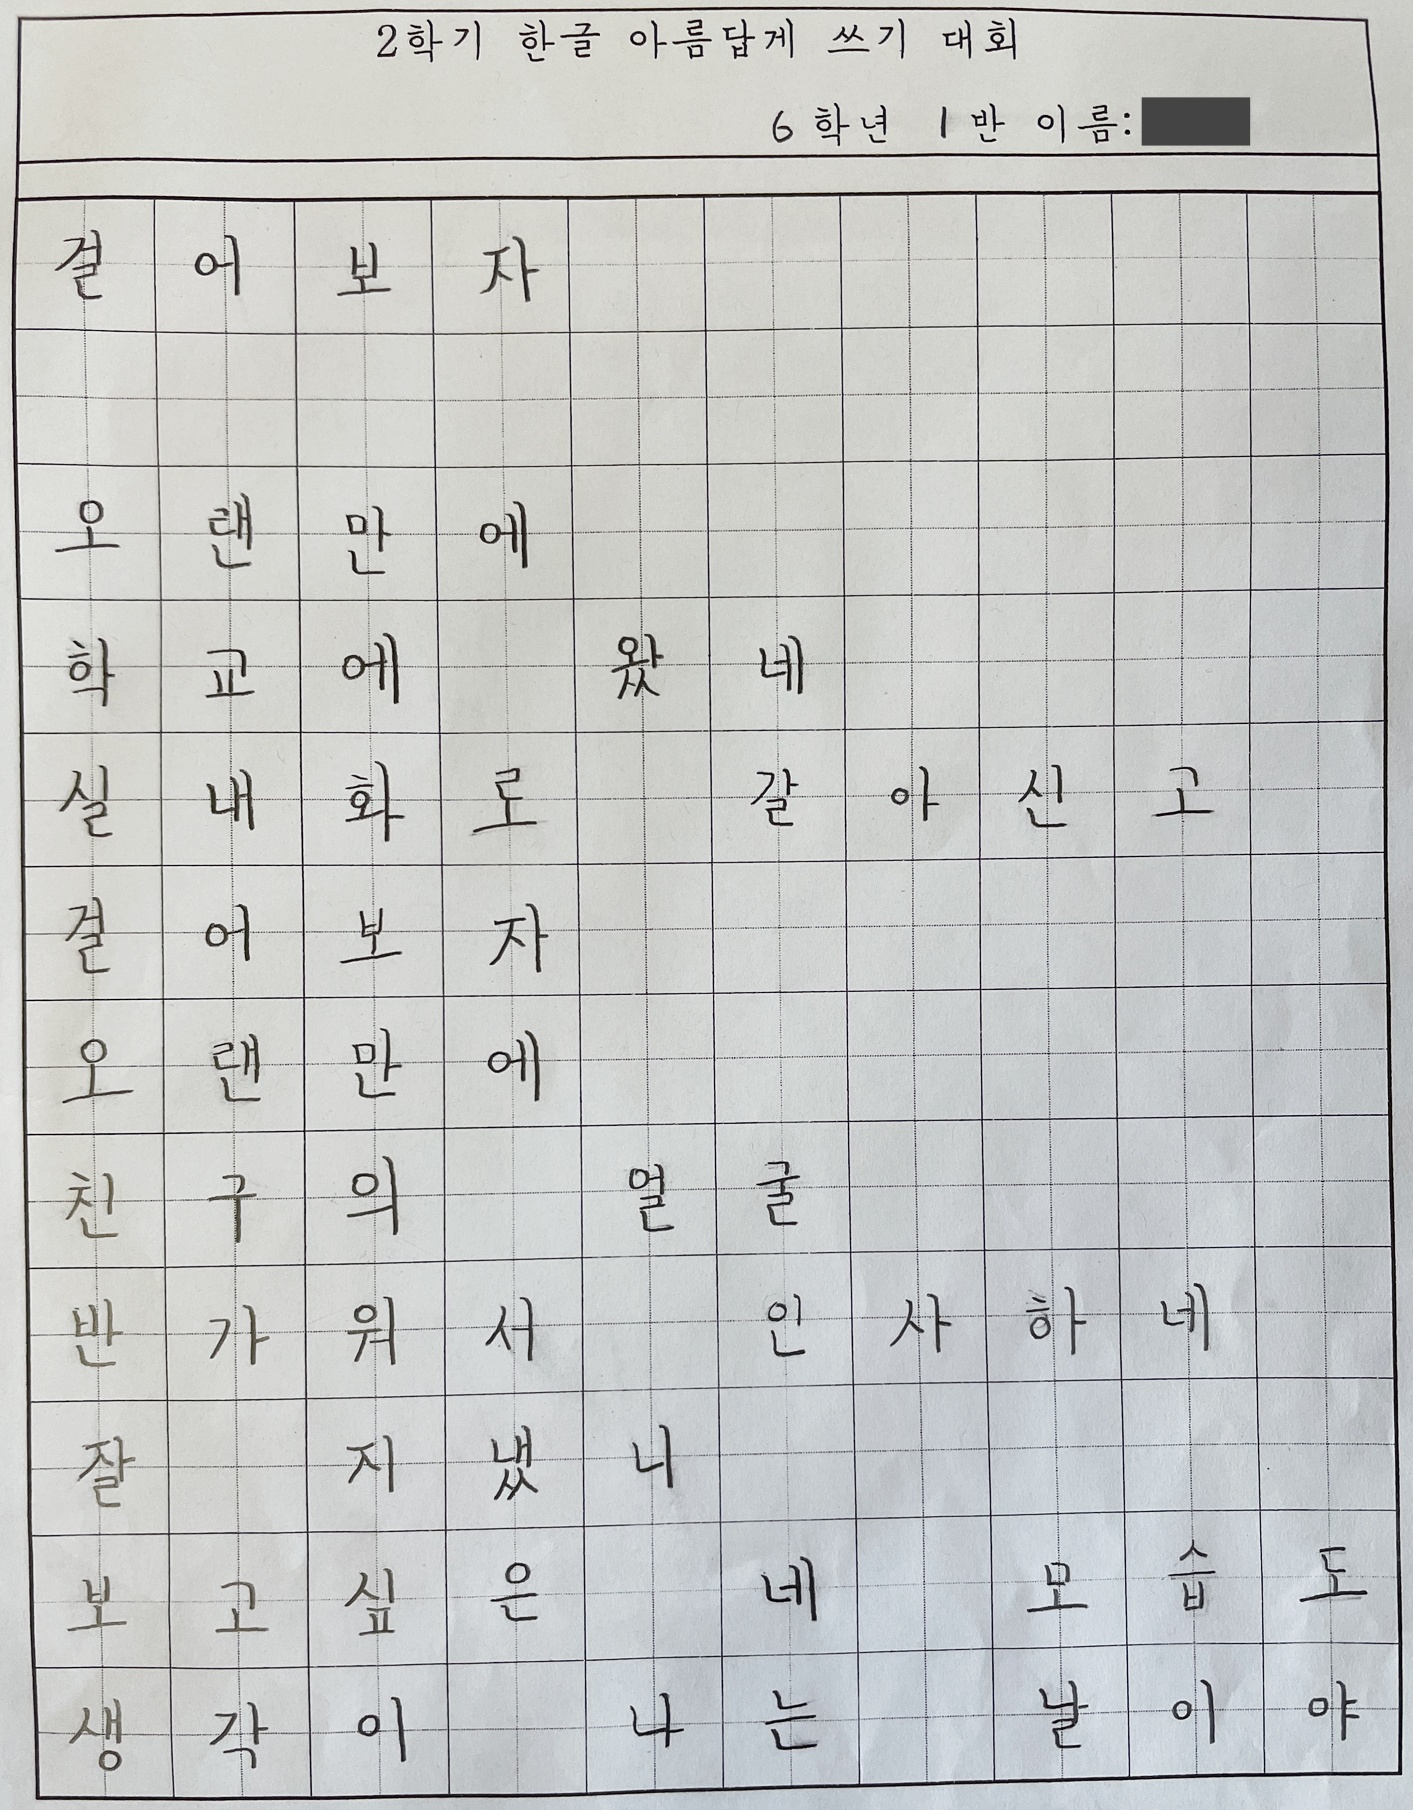 2학기 한글 아름답게 쓰기 대회
6학년 1반 이름:
결어보자
오랜만에
학교에 왔네
실내화로 갈아신고
결어보자
오랜만에
친구의 얼굴
반가워서 인사하네
잘 지냈니
보고싶은 네 모습도
생각이 나는 날이야